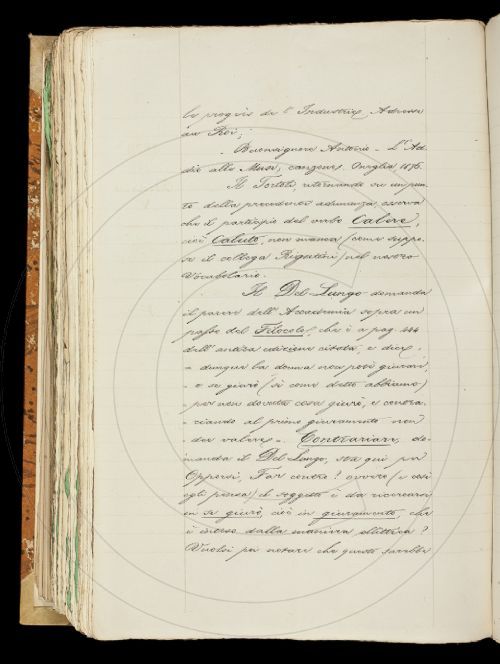 le progrès de l'Industrie, Adresse
au Roi;
Buonsignore Antonio - L'Ad-
dio alle Muse, canzone. Oneglia 1876.
Il Tortoli, ritornando su un pun-
to della precedente adunanza, osserva
che il participio del verbo Calere,
cioè Caluto, non manca (come suppo-
se il collega Rigutini) nel nostro
Vocabolario.
Il Del-Lungo domanda
il parere dell'Accademia sopra un
passo del Filocolo, che è a pag. 444
dell'antica edizione citata, e dice:
- dunque la donna non potè giurare,
- e se giurò (sì come detto abbiamo)
- per non dovuta cosa giurò, e contra-
- riando al primo giuramento non
- dee valere -. Contrariare, do-
manda il Del-Lungo, sta qui per
Opporsi, Far contro? ovvero (e così
egli pensa) il soggetto è da ricercarsi
in se giurò, cioè in giuramento, che
è inteso dalla maniera ellittica?
Vuolsi poi notare che questo sarebbe